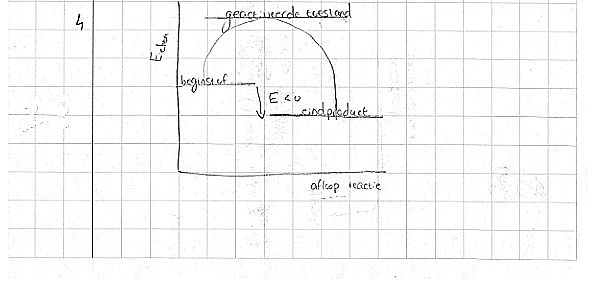 4
geactiveerde toestand
Echem
beginstof
E < 0
eindproduct
afloop reactie